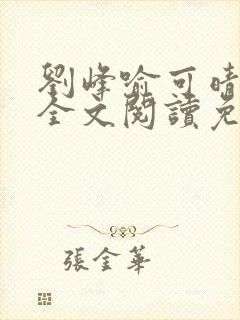 劉峰喻可晴
全文閱讀免
張金華